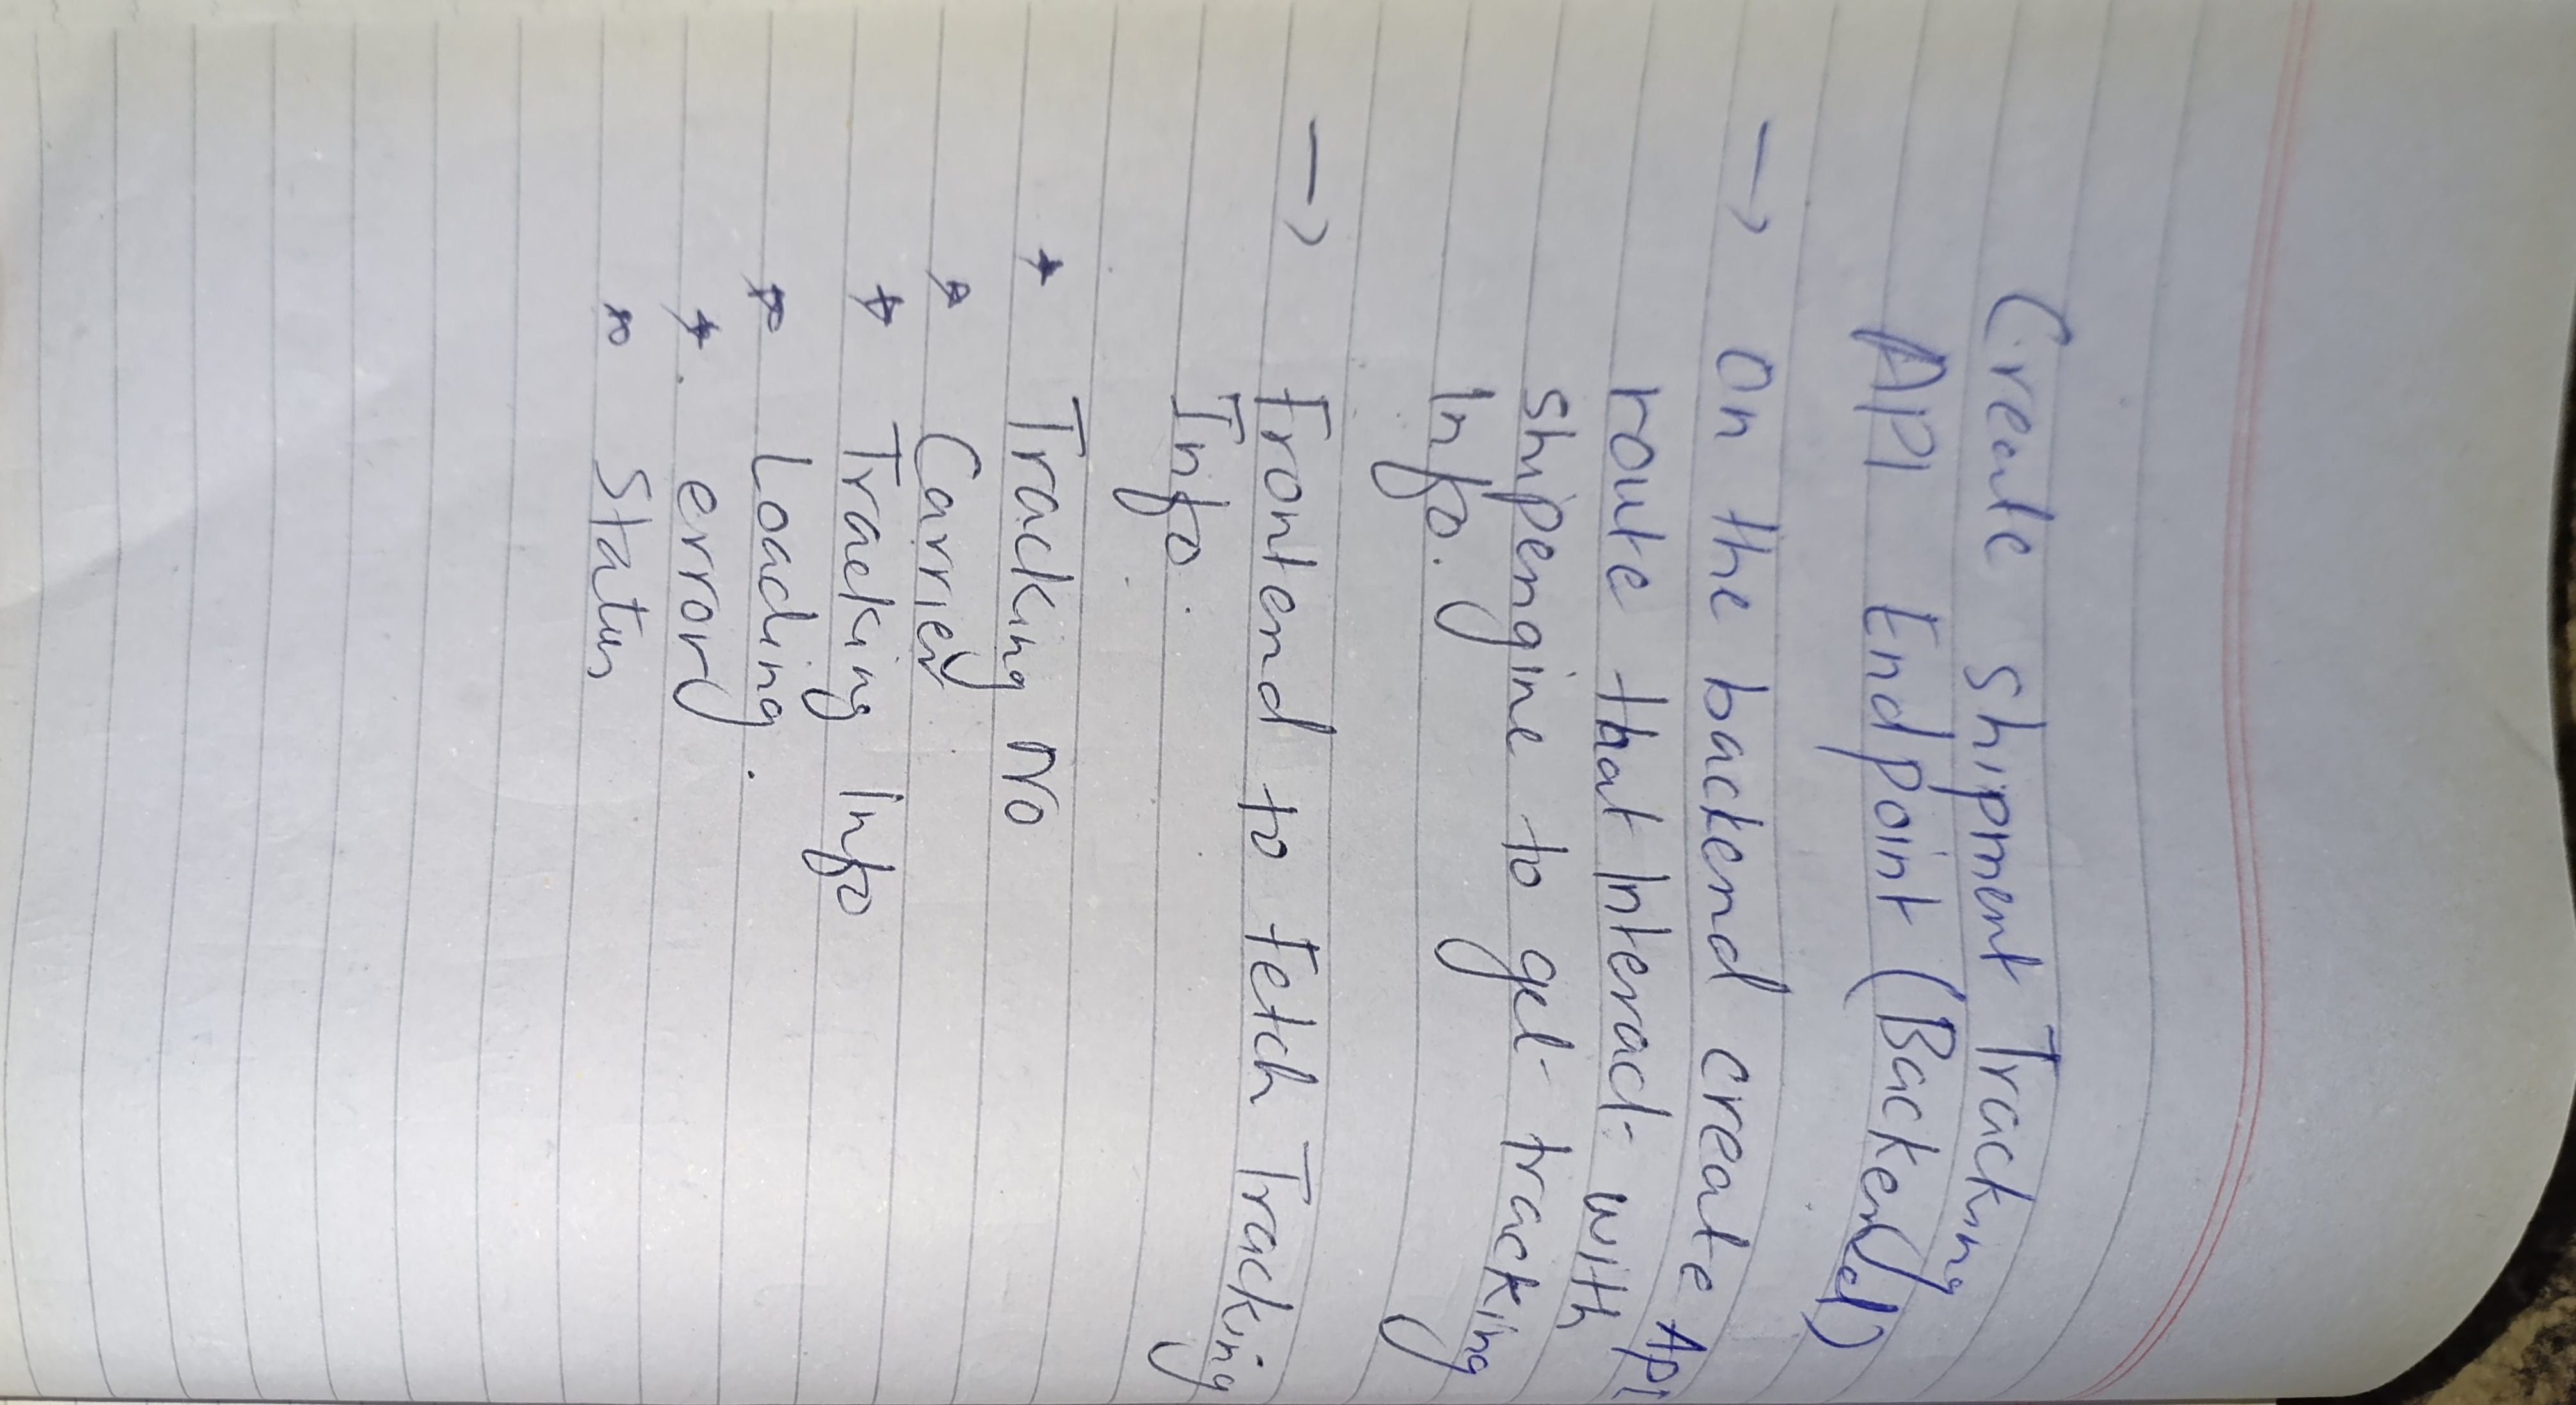 Create shipment Tracking
API Endpoint (Backend)
→ On the backend create Api
route that Interact with
shipengine to get tracking
Info.
→ Frontend to Fetch Tracking
Info.
* Tracking No
* Carrier
* Tracking Info
* Loading.
* error
* Status